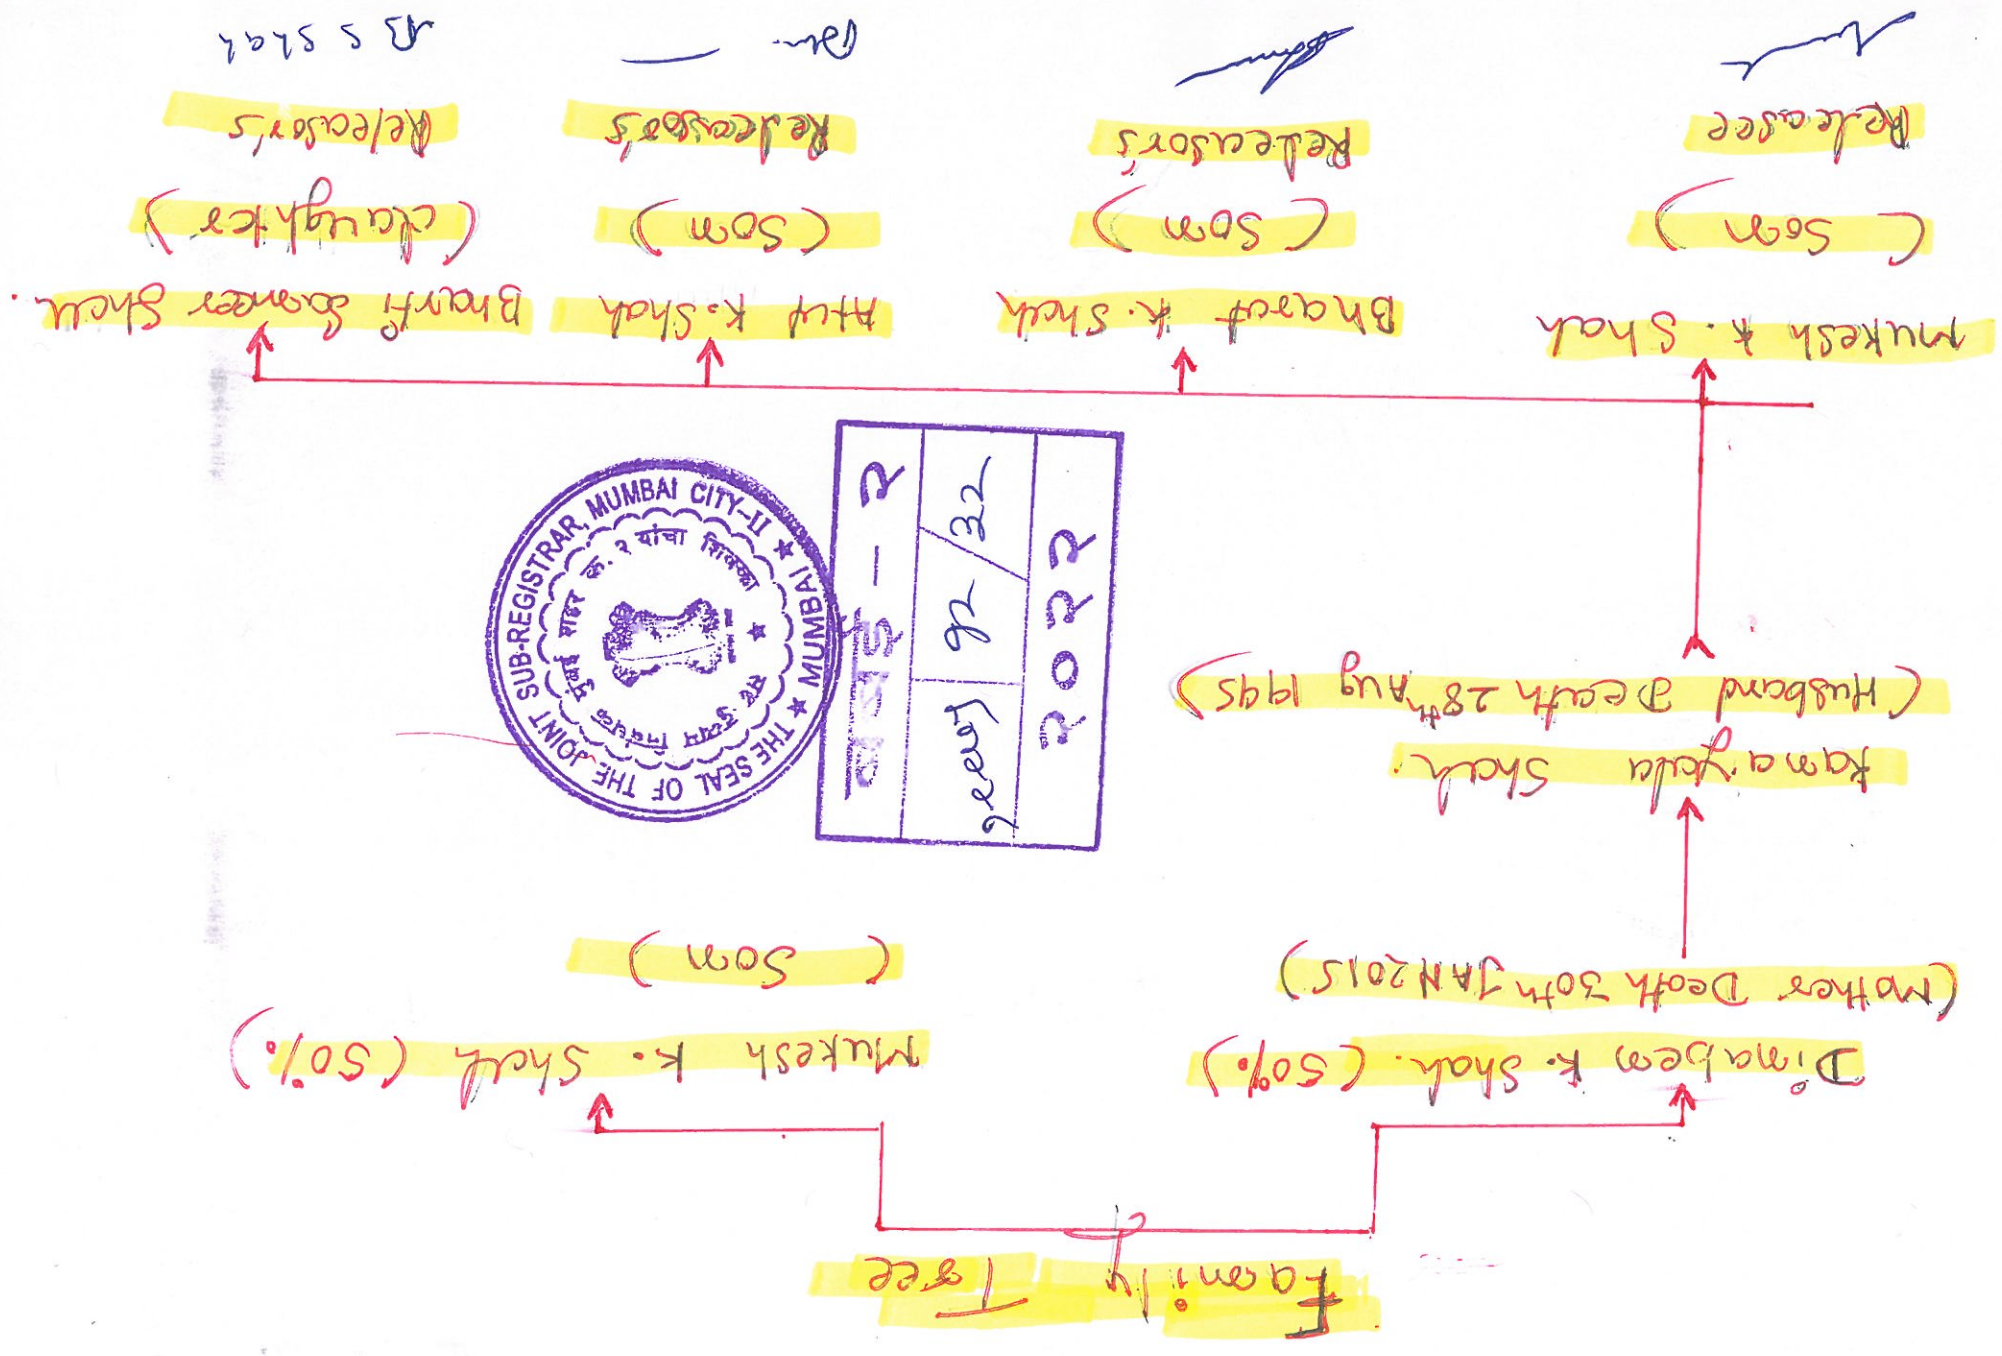 Family Tree
Dinaben K. Shah. (50%)
(Mother Death 30th JAN 2015)
Mukesh K. Shah (50%)
(Son)
(Husband Death 28th Aug 1995)
THE SEAL OF THE JOINT SUB-REGISTRAR, MUMBAI CITY-II ★ MUMBAI ★
सह दुय्यम निबंधक मुंबई शहर क्र. २ यांचा शिक्का ★
बबई - २
१२/३२
२०२२
Mukesh K. Shah
(Son)
Releasee
Bharat K. Shah
(Son)
Releasor's
Atul K. Shah
(Son)
Releasor's
Bharti Sameer Shah.
(daughter)
Releasor's
B S Shah